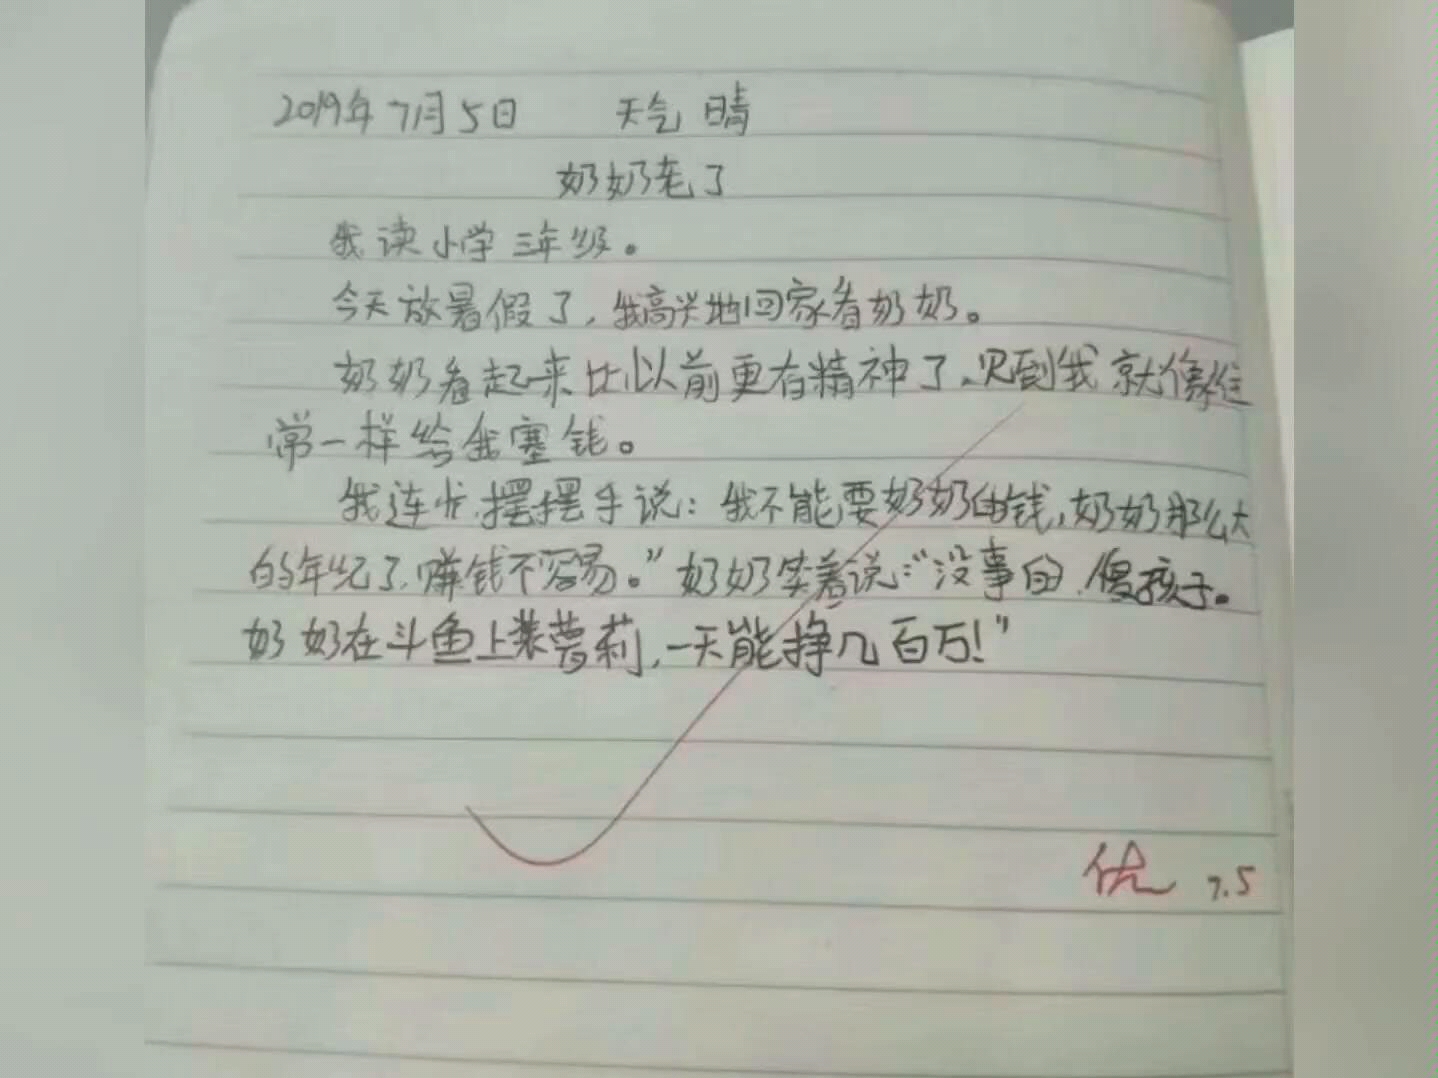 2019年7月5日 天气 晴
奶奶老了
我读小学三年级。
今天放暑假了，我高兴地回家看奶奶。
奶奶看起来比以前更有精神了，见到我就像往
常一样给我塞钱。
我连忙摆摆手说：我不能要奶奶的钱，奶奶那么大
的年纪了，赚钱不容易。”奶奶笑着说：“没事的，傻孩子。
奶奶在斗鱼上装萝莉，一天能挣几百万！”
优 7.5